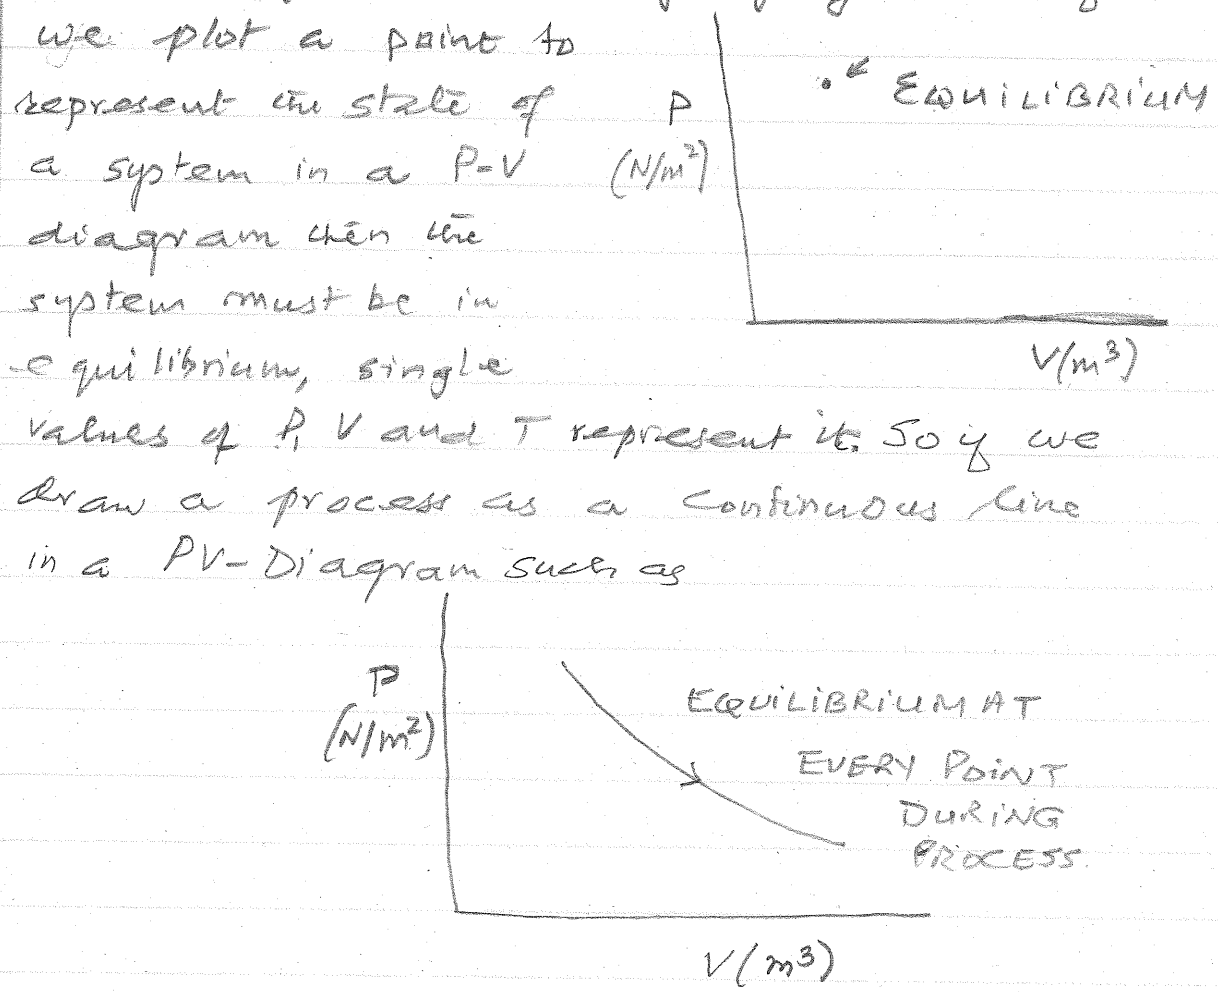 we plot a point to
represent the state of
a system in a P-V
diagram then the
system must be in
equilibrium, single
values of P, V and T represent it. So if we
draw a process as a continuous line
in a PV-Diagram such as
EQUILIBRIUM
P
(N/m²)
V(m³)
P
(N/m²)
EQUILIBRIUM AT
EVERY POINT
DURING
PROCESS.
V(m³)